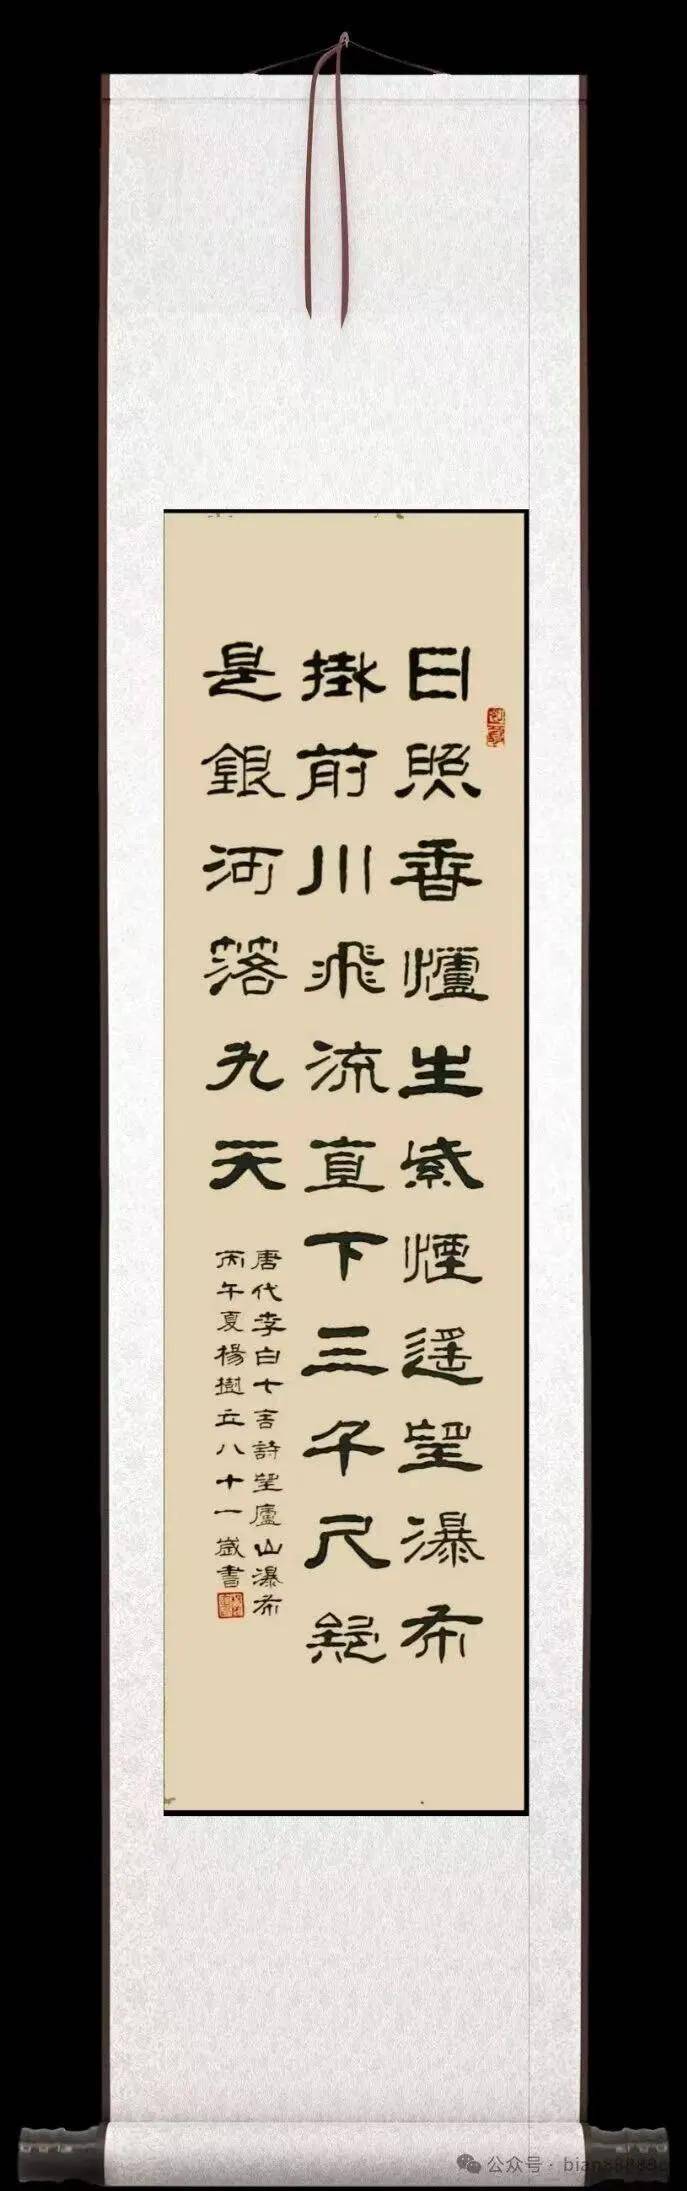 日照香爐生紫煙遙望瀑布
掛前川飛流直下三千尺疑
是銀河落九天
唐代李白七言詩望廬山瀑布
丙午夏楊樹立八十一歲書
公众号